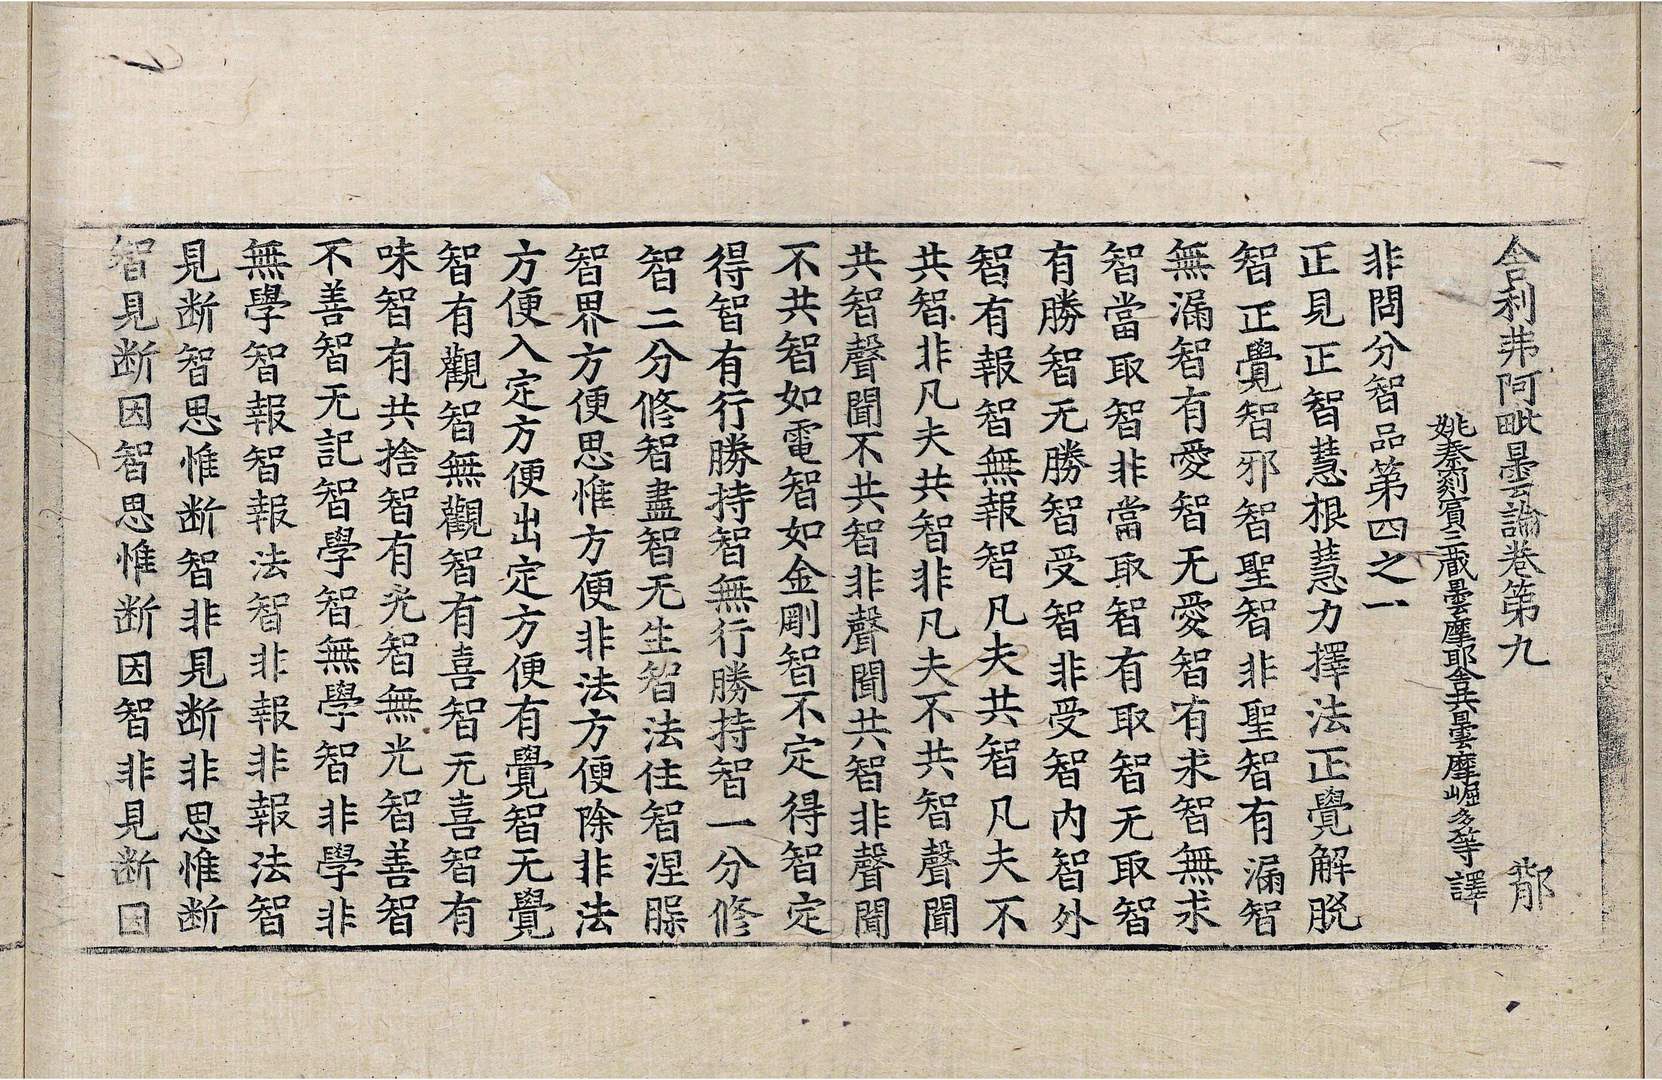 舍利弗阿毗曇論卷第九 鄁
姚秦罽賓三藏曇摩耶舍共曇摩崛多等譯
非問分智品第四之一
正見正智慧根慧力擇法正覺解脫
智正覺智邪智聖智非聖智有漏智
無漏智有愛智无愛智有求智無求
智當取智非當取智有取智无取智
有勝智无勝智受智非受智內智外
智有報智無報智凡夫共智凡夫不
共智非凡夫共智非凡夫不共智聲聞
共智聲聞不共智非聲聞共智非聲聞
不共智如電智如金剛智不定得智定
得智有行勝持智無行勝持智一分修
智二分修智盡智无生智法住智涅槃
智界方便思惟方便非法方便除非法
方便入定方便出定方便有覺智无覺
智有觀智無觀智有喜智无喜智有
味智有共捨智有光智無光智善智
不善智无記智學智無學智非學非
無學智報智報法智非報非報法智
見断智思惟断智非見断非思惟断
智見断因智思惟断因智非見断因